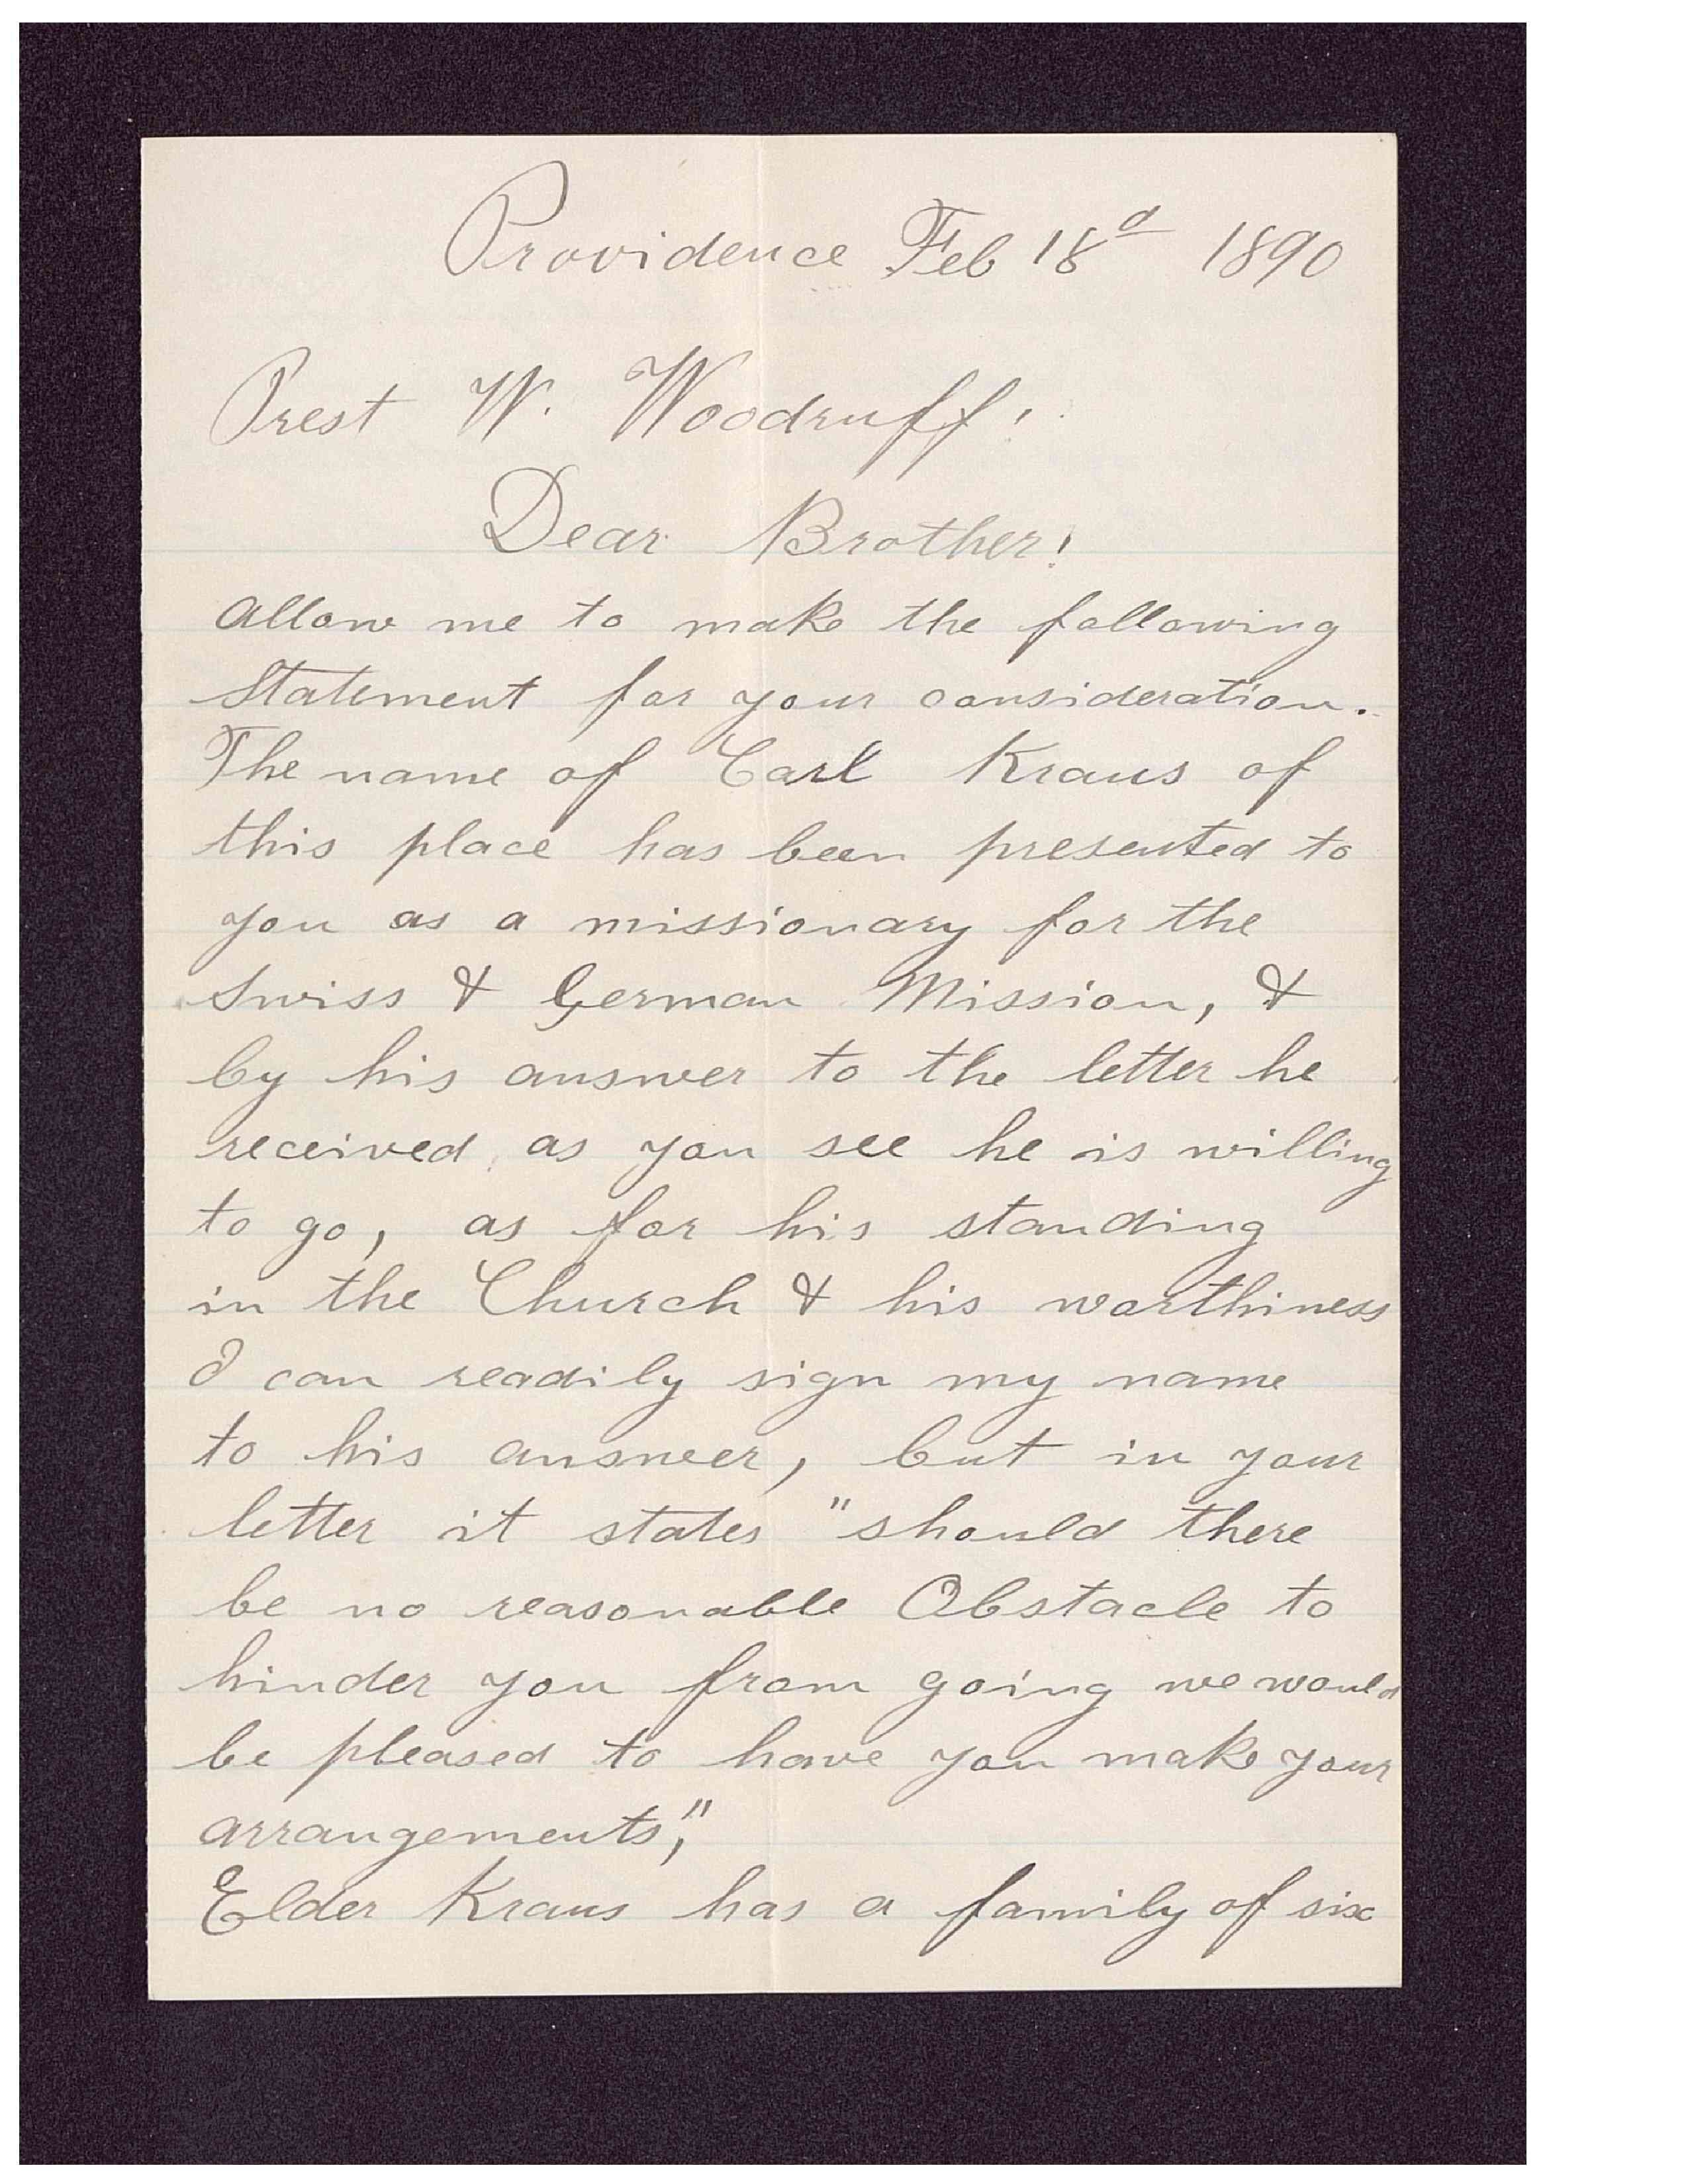 Providence Feb 18d 1890
Prest W. Woodruff!
Dear Brother!
Allow me to make the following
Statement for your consideration.
The name of Carl Kraus of
this place has been presented to
you as a missionary for the
Swiss & German Mission, &
by his answer to the letter he
received, as you see he is willing
to go, as for his standing
in the Church & his worthiness
I can readily sign my name
to his answer, but in your
letter it states "should there
be no reasonable Obstacle to
hinder you from going we would
be pleased to have you make your
arrangements,"
Elder Kraus has a family of six